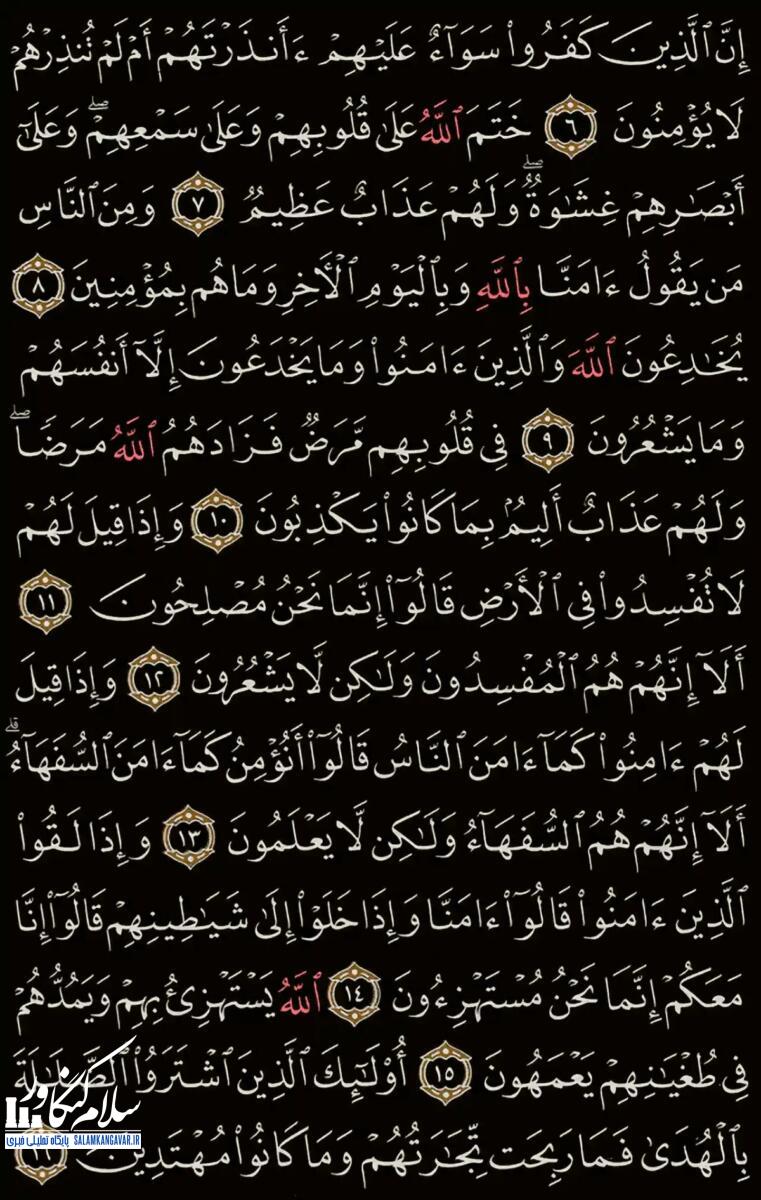 إِنَّ ٱلَّذِينَ كَفَرُوا۟ سَوَآءٌ عَلَيْهِمْ ءَأَنذَرْتَهُمْ أَمْ لَمْ تُنذِرْهُمْ
لَا يُؤْمِنُونَ ٦ خَتَمَ ٱللَّهُ عَلَىٰ قُلُوبِهِمْ وَعَلَىٰ سَمْعِهِمْ ۖ وَعَلَىٰٓ
أَبْصَـٰرِهِمْ غِشَـٰوَةٌ ۖ وَلَهُمْ عَذَابٌ عَظِيمٌ ٧ وَمِنَ ٱلنَّاسِ
مَن يَقُولُ ءَامَنَّا بِٱللَّهِ وَبِٱلْيَوْمِ ٱلْـَٔاخِرِ وَمَا هُم بِمُؤْمِنِينَ ٨
يُخَـٰدِعُونَ ٱللَّهَ وَٱلَّذِينَ ءَامَنُوا۟ وَمَا يَخْدَعُونَ إِلَّآ أَنفُسَهُمْ
وَمَا يَشْعُرُونَ ٩ فِى قُلُوبِهِم مَّرَضٌ فَزَادَهُمُ ٱللَّهُ مَرَضًا ۖ
وَلَهُمْ عَذَابٌ أَلِيمٌۢ بِمَا كَانُوا۟ يَكْذِبُونَ ١٠ وَإِذَا قِيلَ لَهُمْ
لَا تُفْسِدُوا۟ فِى ٱلْأَرْضِ قَالُوٓا۟ إِنَّمَا نَحْنُ مُصْلِحُونَ ١١
أَلَآ إِنَّهُمْ هُمُ ٱلْمُفْسِدُونَ وَلَـٰكِن لَّا يَشْعُرُونَ ١٢ وَإِذَا قِيلَ
لَهُمْ ءَامِنُوا۟ كَمَآ ءَامَنَ ٱلنَّاسُ قَالُوٓا۟ أَنُؤْمِنُ كَمَآ ءَامَنَ ٱلسُّفَهَآءُ ۗ
أَلَآ إِنَّهُمْ هُمُ ٱلسُّفَهَآءُ وَلَـٰكِن لَّا يَعْلَمُونَ ١٣ وَإِذَا لَقُوا۟
ٱلَّذِينَ ءَامَنُوا۟ قَالُوٓا۟ ءَامَنَّا وَإِذَا خَلَوْا۟ إِلَىٰ شَيَـٰطِينِهِمْ قَالُوٓا۟ إِنَّا
مَعَكُمْ إِنَّمَا نَحْنُ مُسْتَهْزِءُونَ ١٤ ٱللَّهُ يَسْتَهْزِئُ بِهِمْ وَيَمُدُّهُمْ
فِى طُغْيَـٰنِهِمْ يَعْمَهُونَ ١٥ أُو۟لَـٰٓئِكَ ٱلَّذِينَ ٱشْتَرَوُا۟ ٱلضَّلَـٰلَةَ
بِٱلْهُدَىٰ فَمَا رَبِحَت تِّجَـٰرَتُهُمْ وَمَا كَانُوا۟ مُهْتَدِينَ ١٦
سلام کنگاور
پایگاه تحلیلی خبری SALAMKANGAVAR.IR